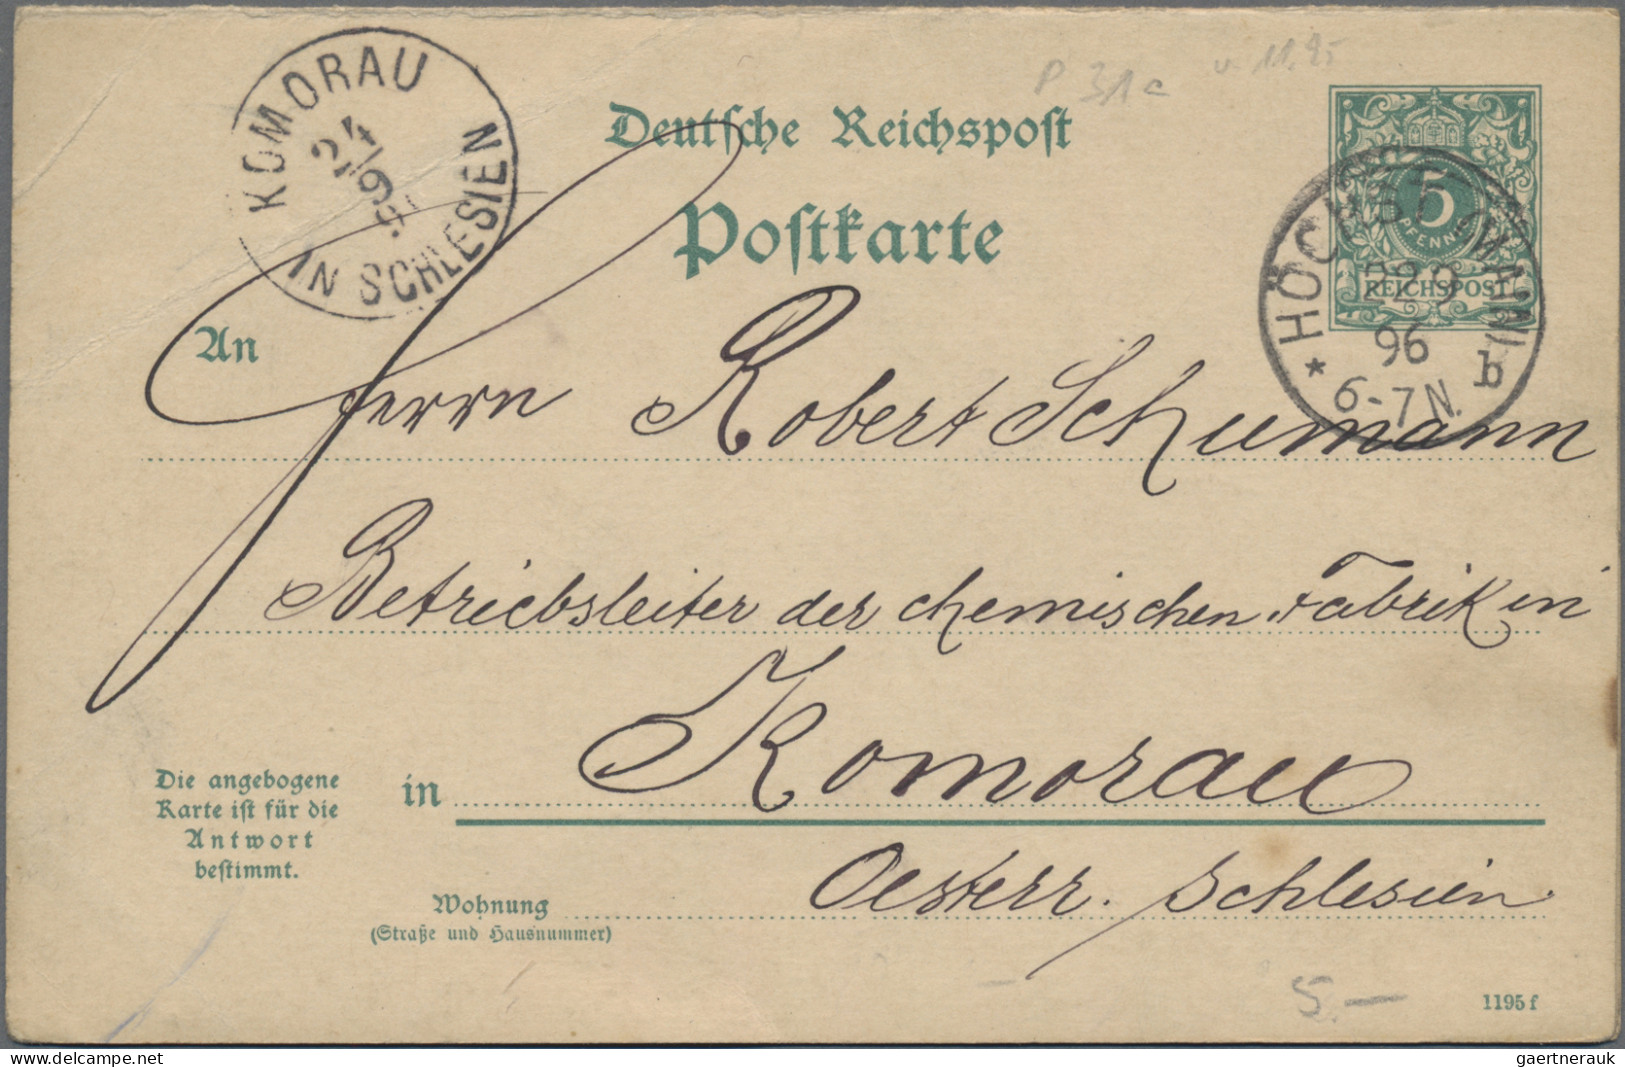 P 31a v. 11.95
KOMORAU
24/9
IN SCHLESIEN
Deutsche Reichspost
Postkarte
5
PFENNIG
REICHSPOST
HÖCHST (MAIN)
22.9
96
6-7N.
* b
An
Herrn Robert Schumann
Betriebsleiter der chemischen Fabrik in
in Komorau
Oesterr. Schlesien.
Die angebogene
Karte ist für die
Antwort
bestimmt.
Wohnung
(Straße und Hausnummer)
5.—
1195 f
www.delcampe.net
gaertnerauk